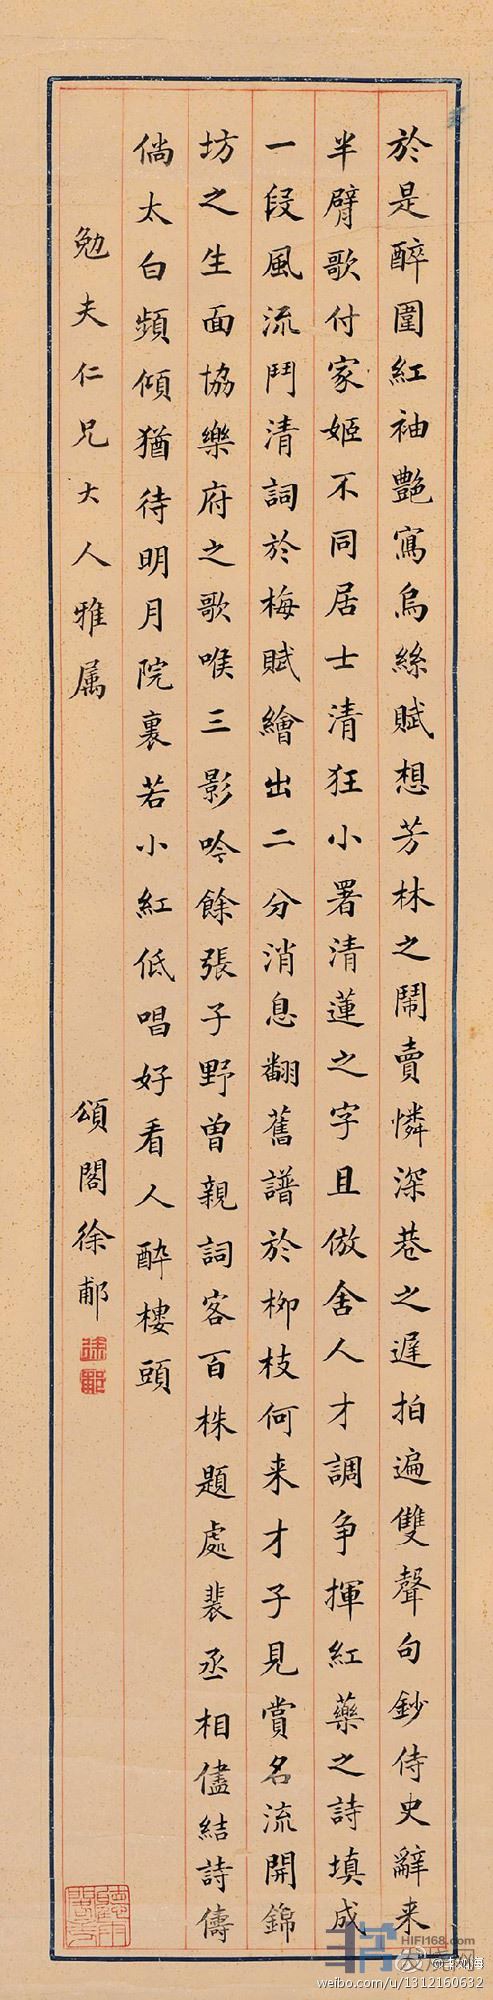 於是醉圍紅袖艷寫烏絲賦想芳林之鬧賣憐深巷之遲拍遍雙聲句鈔侍史辭来
半臂歌付家姬不同居士清狂小署清蓮之字且倣舍人才調争揮紅藥之詩填成
一段風流鬥清詞於梅賦繪出二分消息翻舊譜於柳枝何来才子見賞名流開錦
坊之生面協樂府之歌喉三影吟餘張子野曾親詞客百株題處裴丞相儘結詩儔
倘太白頻傾猶待明月院裏若小紅低唱好看人醉樓頭
勉夫仁兄大人雅属
頌閣徐郙
HIFI168.com
发烧网
weibo.com/u/1312160632